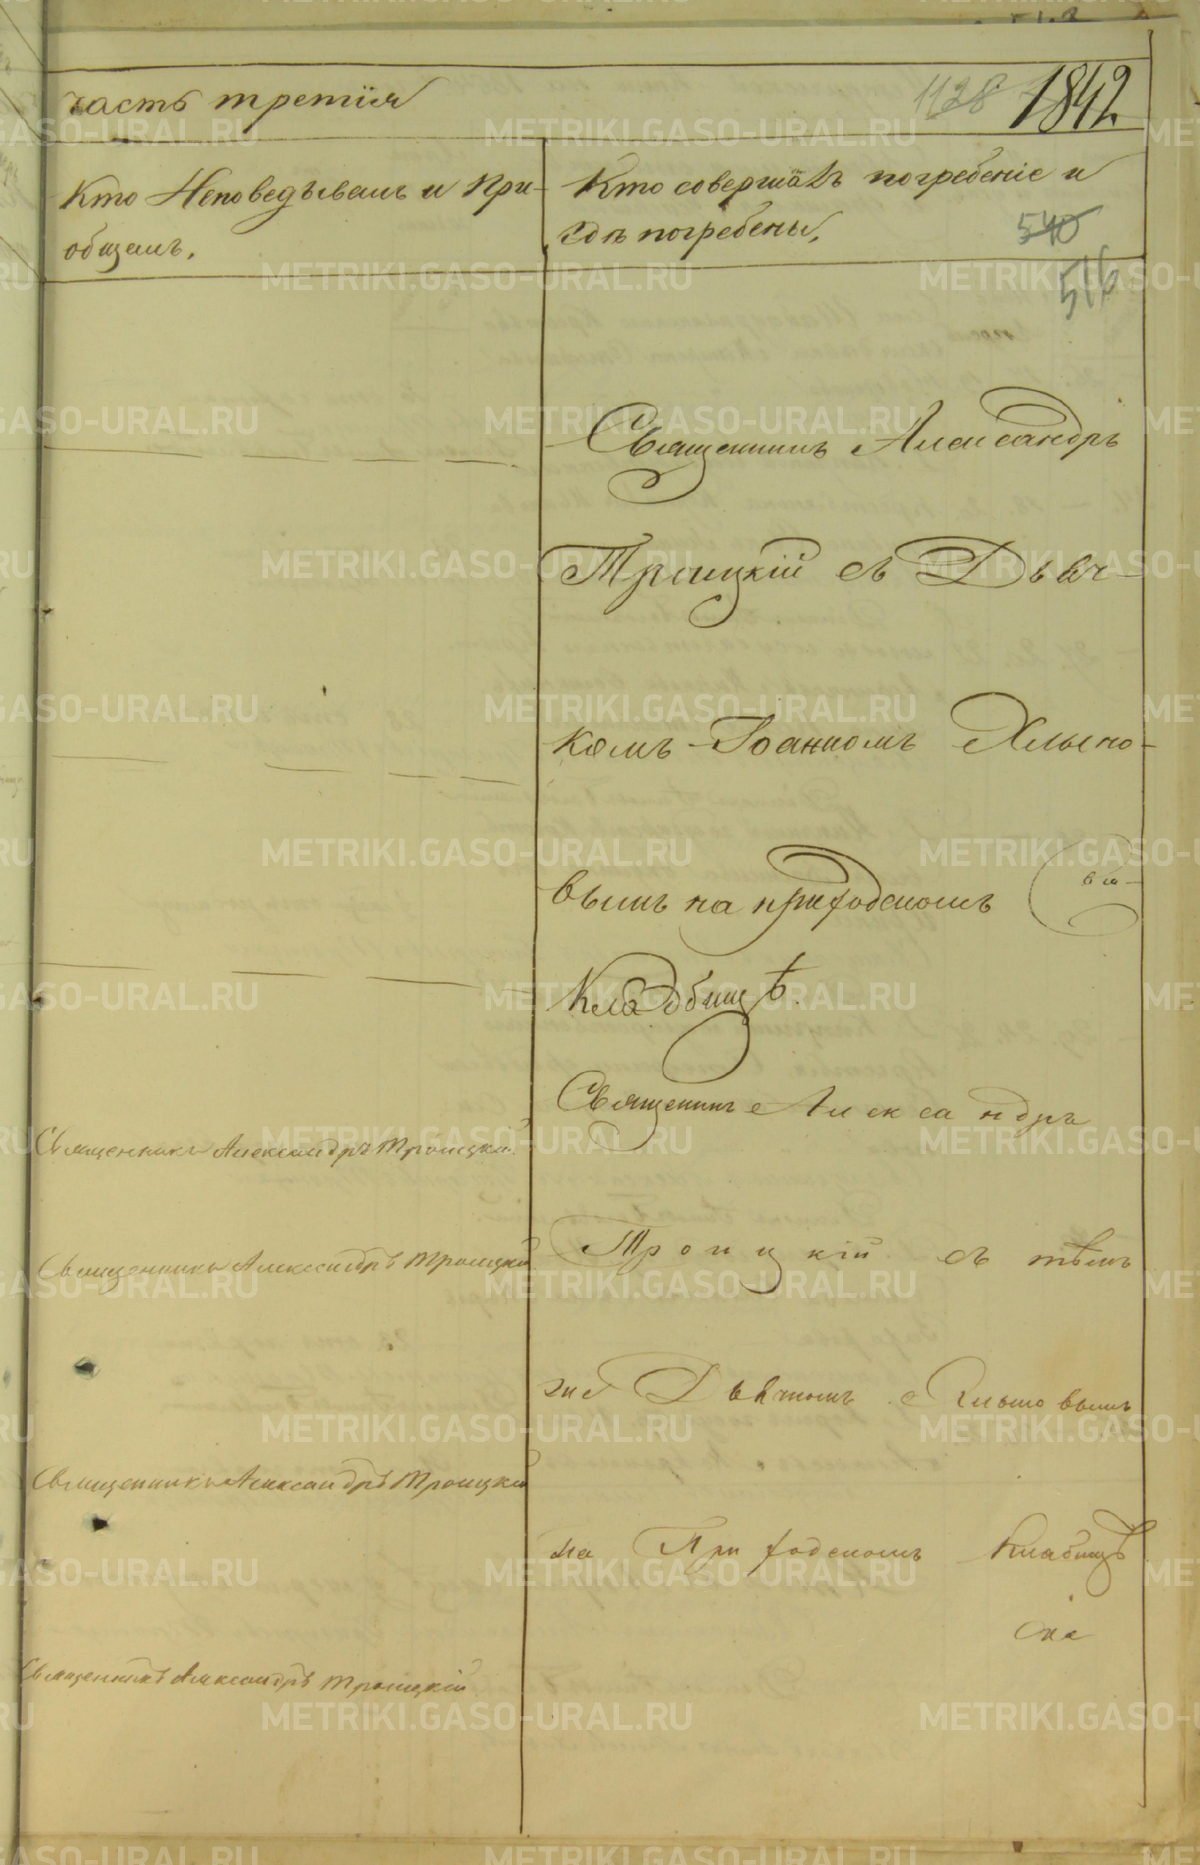 часть третія
1128 1842
Кто Исповедывалъ и При-
общалъ.
Кто совершалъ погребеніе и
гдѣ погребены.
540
516
Священникъ Александръ
Троицкій съ Дьяч-
комъ Іоанномъ Хлыно-
вымъ на приходскомъ
Кладбищѣ.
Священникъ Александръ
Троицкій съ тѣмъ
же Дьячкомъ Хлыновымъ
на Приходскомъ Кладбищѣ
Священникъ Александръ Троицкій
Священникъ Александръ Троицкій
Священникъ Александръ Троицкій
Священникъ Александръ Троицкій
METRIKI.GASO-URAL.RU